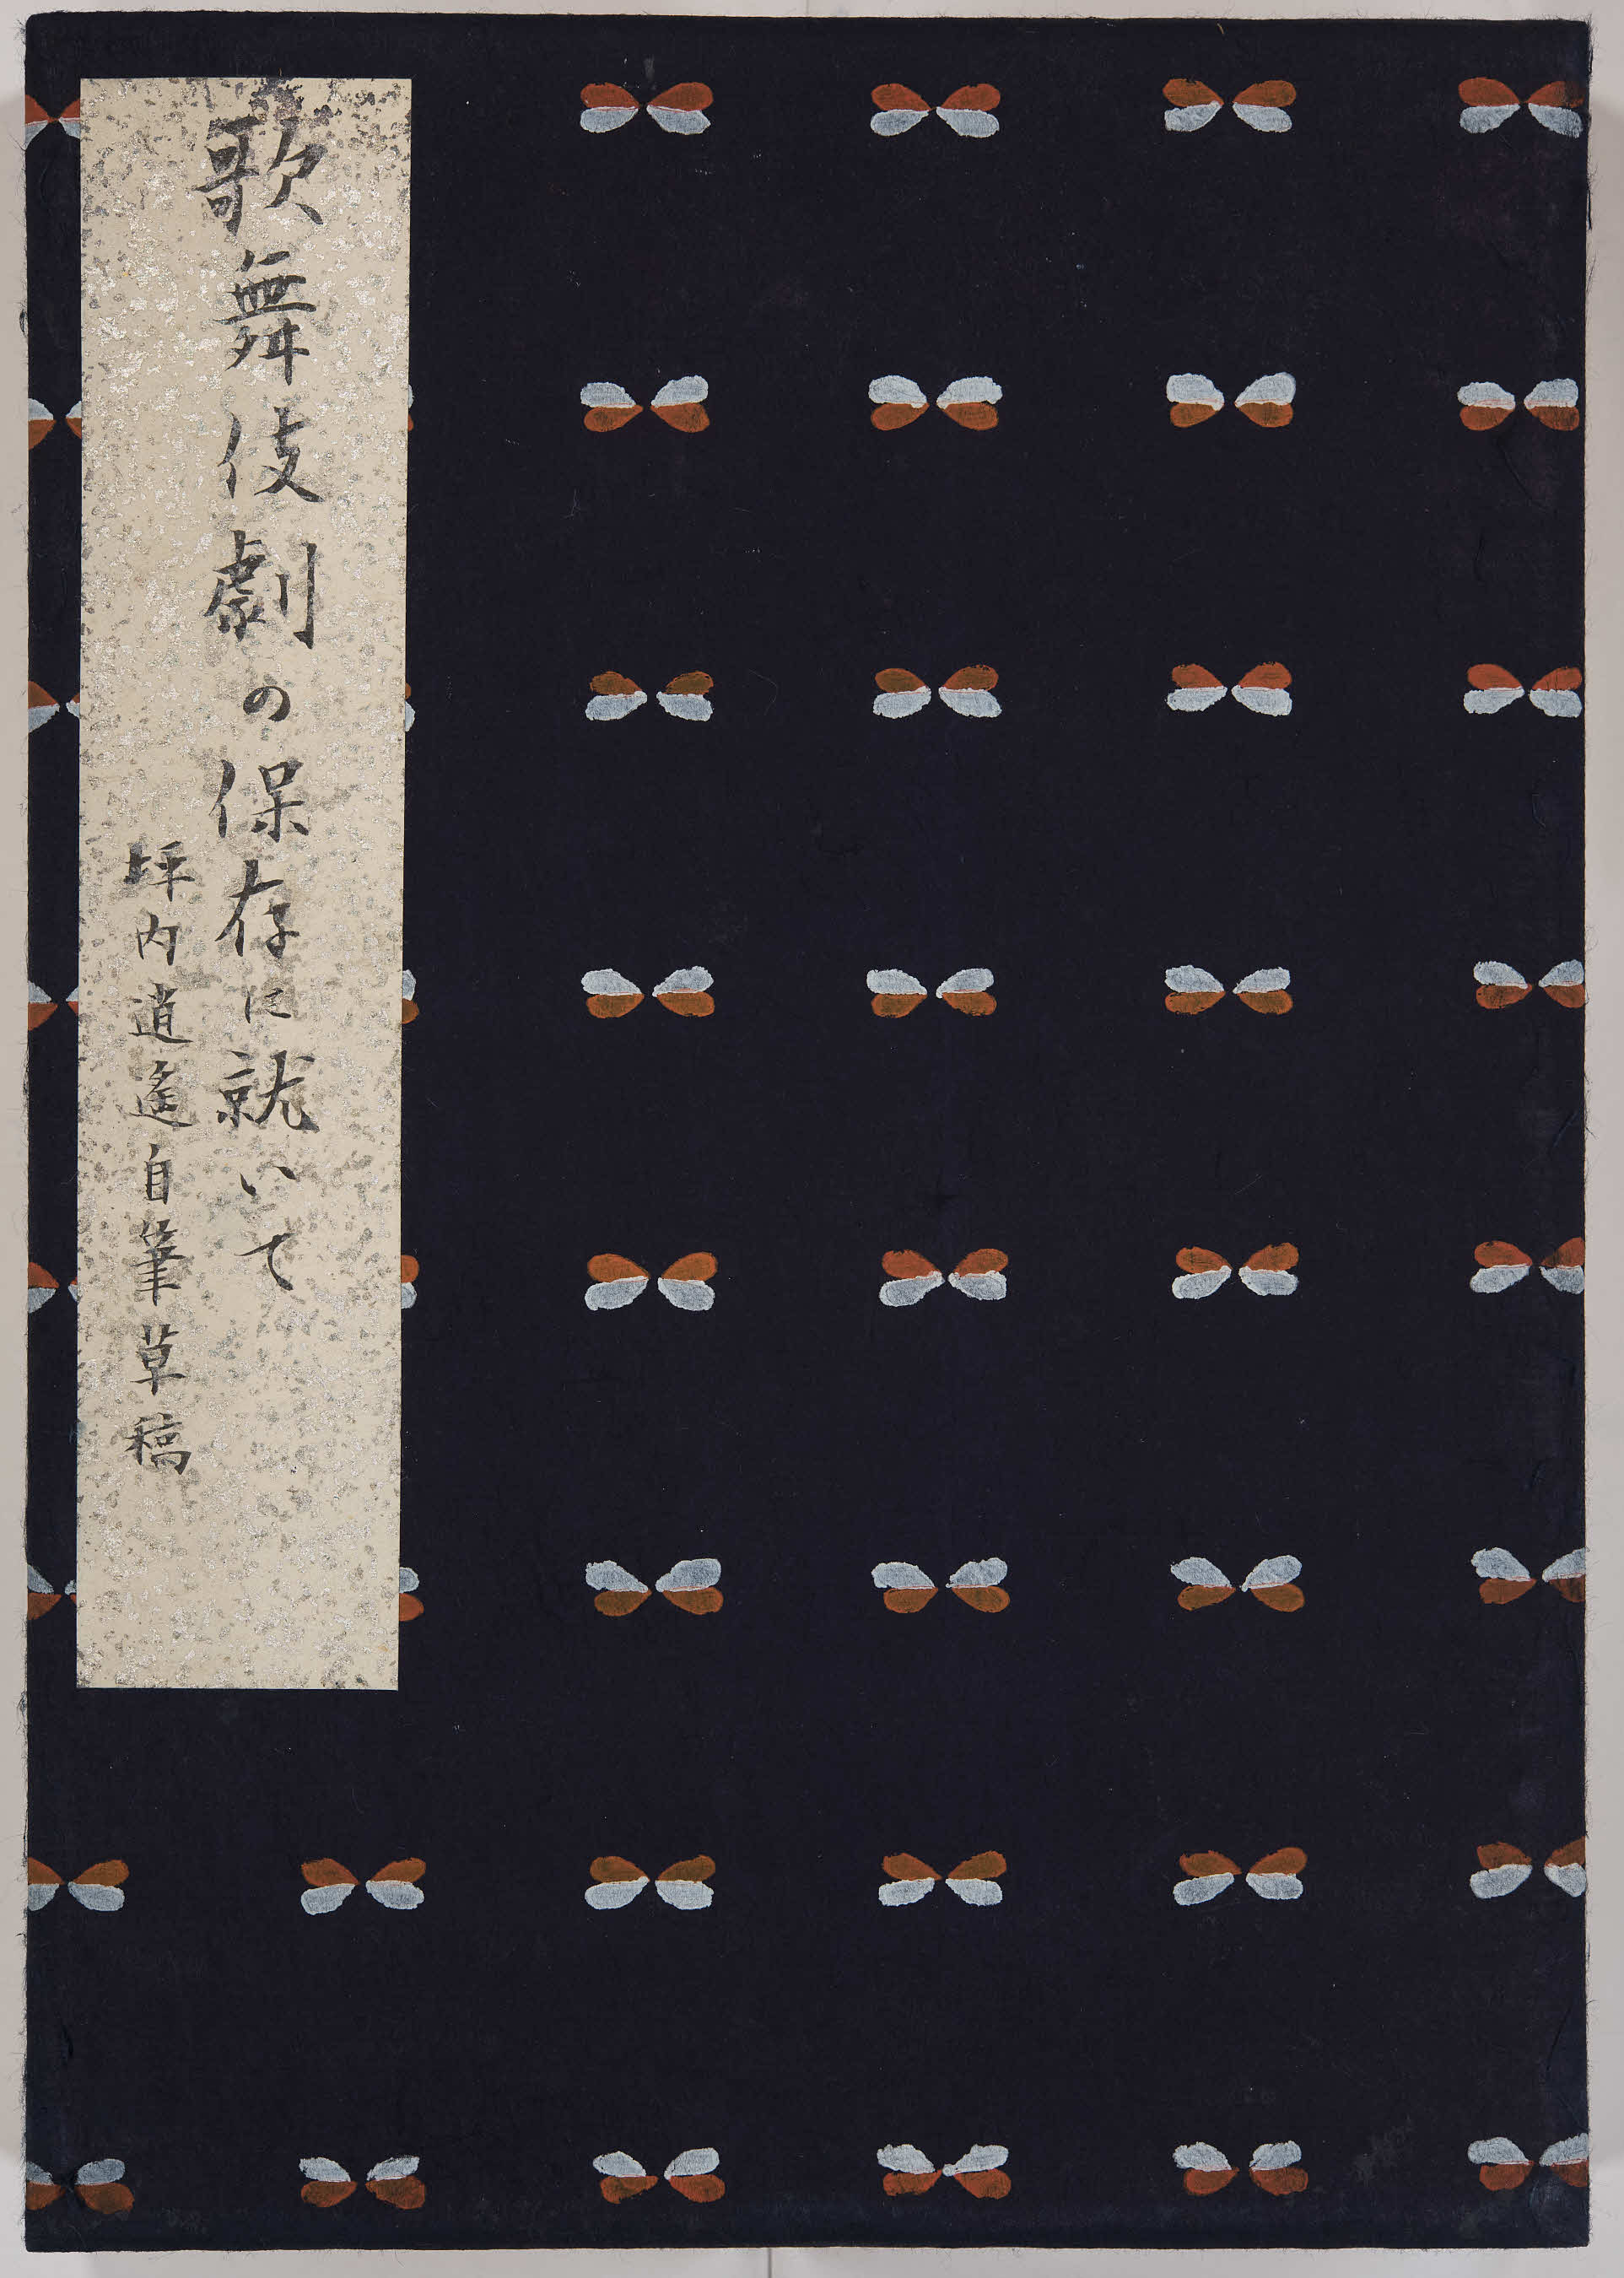 歌舞伎劇の保存に就いて
坪内逍遙自筆草稿